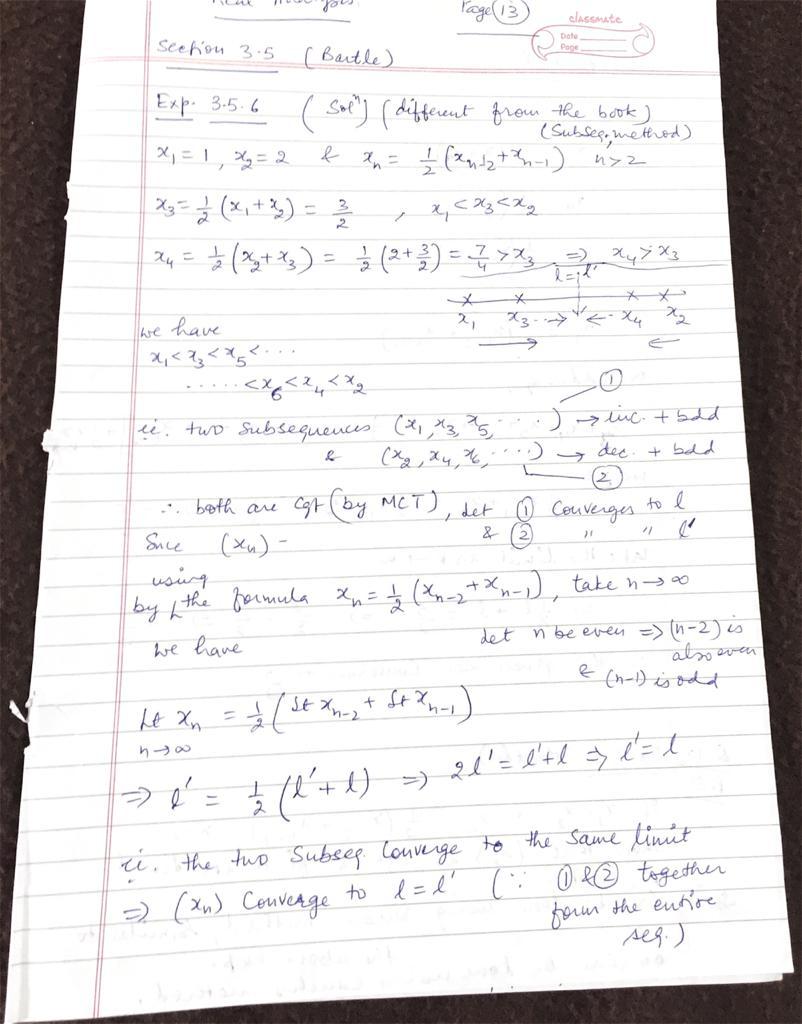 Page (13)
classmate
Date
Page
Section 3.5 (Bartle)
Exp. 3.5.6 (Solⁿ) (different from the book)
(Subseq. method)
x₁ = 1, x₂ = 2 & xₙ = 1/2 (xₙ₋₂ + xₙ₋₁) n > 2
x₃ = 1/2 (x₁ + x₂) = 3/2 , x₁ < x₃ < x₂
x₄ = 1/2 (x₂ + x₃) = 1/2 (2 + 3/2) = 7/4 > x₃ ⇒ x₄ > x₃
l = l'
x₁ x₃ ··→ ← ·· x₄ x₂
→ ←
we have
x₁ < x₃ < x₅ < ···
····· < x₆ < x₄ < x₂
ie. two subsequences (x₁, x₃, x₅, ····) → inc. + bdd ①
& (x₂, x₄, x₆, ····) → dec. + bdd ②
∴ both are cgt (by MCT), let ① Converges to l
Snce (xₙ) – & ② " " l'
by using the formula xₙ = 1/2 (xₙ₋₂ + xₙ₋₁), take n → ∞
we have let n be even ⇒ (n-2) is
also even
& (n-1) is odd
Lt xₙ = 1/2 (Lt xₙ₋₂ + Lt xₙ₋₁)
n→∞
⇒ l' = 1/2 (l' + l) ⇒ 2l' = l' + l ⇒ l' = l
ie. the two subseq. Converge to the same limit
⇒ (xₙ) Converge to l = l' (∵ ① & ② together
form the entire
seq.)